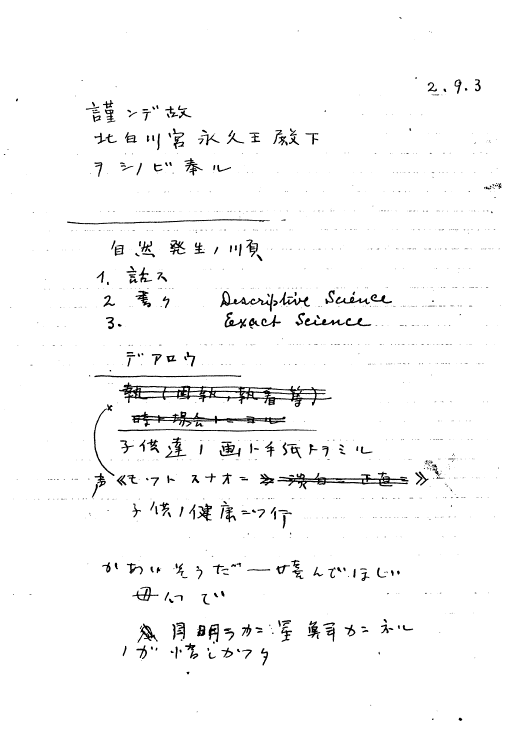 2.9.3
謹ンデ故
北白川宮永久王殿下
ヲシノビ奉ル
自然発生ノ順
1. 話ス
2 書ク Descriptive Science
3. Exact Science
デアロウ
執(固執,執着等)
時ト場合トニヨル
子供達ノ画ト手紙トヲミル
声《モット スナオニ 淡白ニ 正直ニ》
子供ノ健康
かあいそうだ― 喜んでほしい
月明ラカニ星輝カニネル
ノガ惜しかった